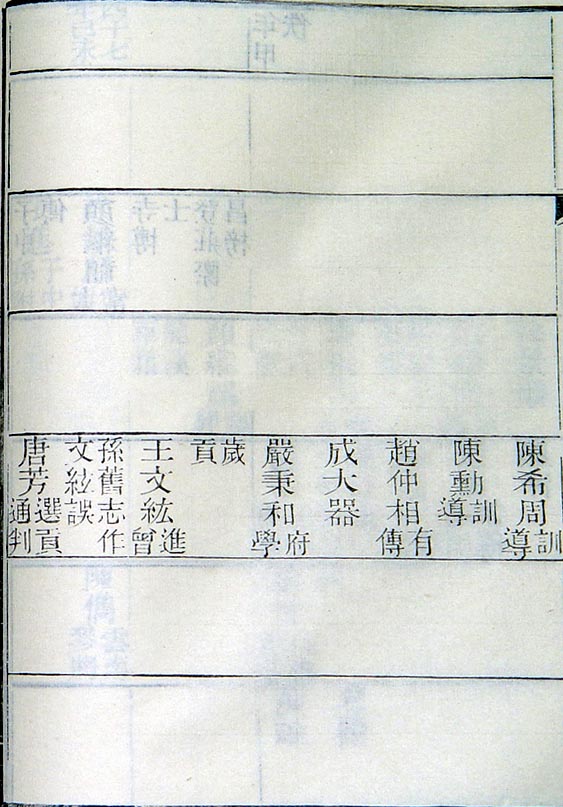 陳希周訓導
陳勳訓導
趙仲相有傳
成大器
嚴秉和府學
歲貢
王文紘進曾
孫舊志作文絃誤
唐芳選貢通判